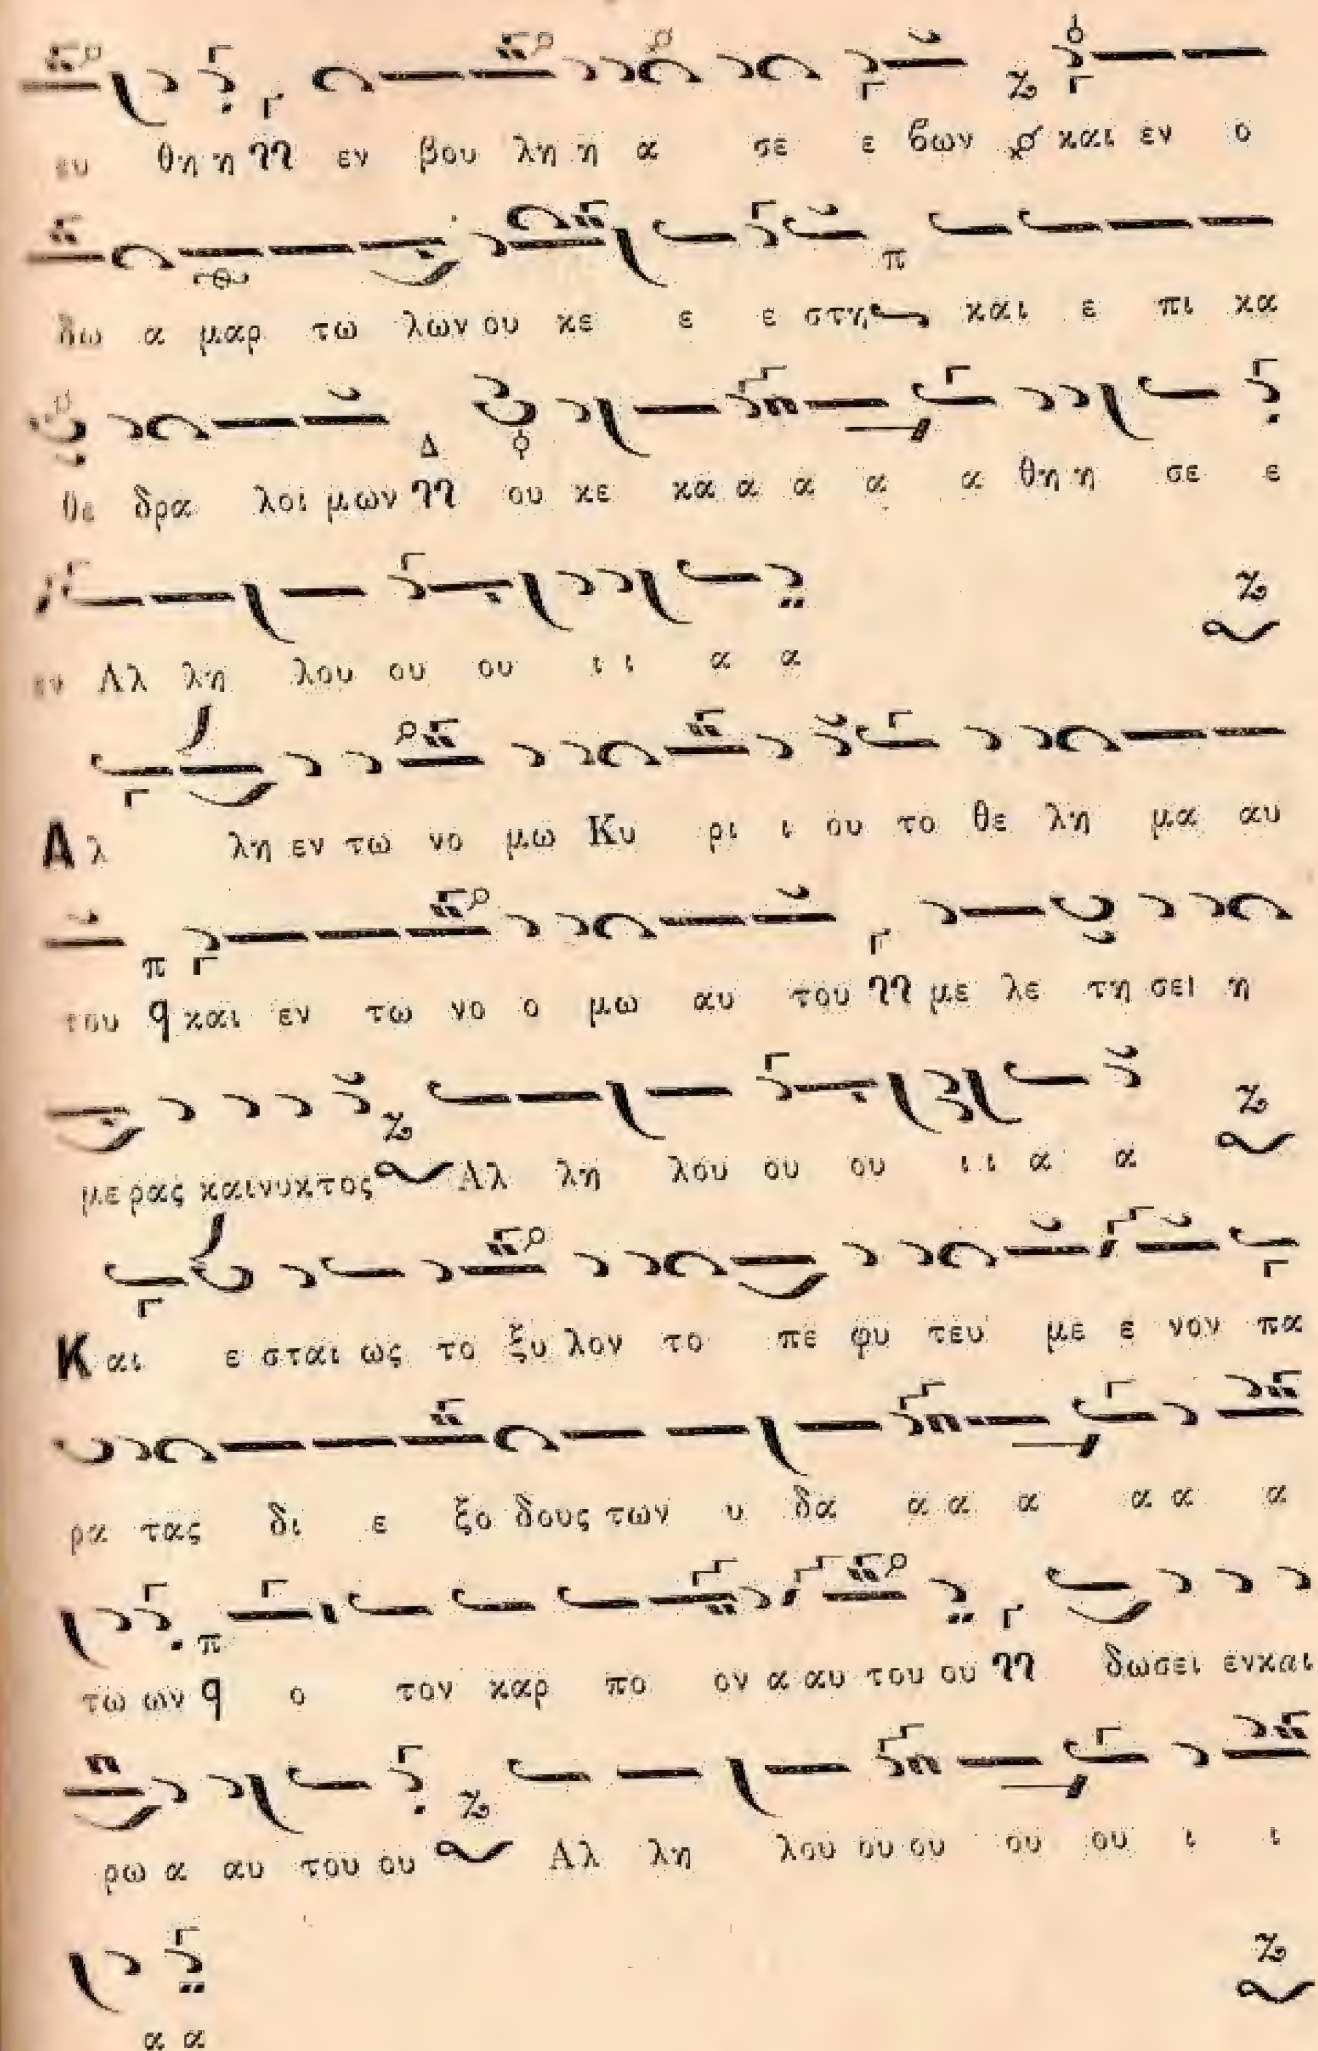 ευ θη η εν βου λη η α σε ε βων και εν ο
δω α μαρ τω λων ου κε ε ε στη και ε πι κα
θε δρα λοι μων ου κε κα α α α α θη η σε ε
εν Αλ λη λου ου ου ι ι α α
Αλ λη εν τω νο μω Κυ ρι ι ου το θε λη μα αυ
του και εν τω νο ο μω αυ του με λε τη σει η
με ρας και νυκτος Αλ λη λου ου ου ι ι α α
Και ε σται ως το ξυ λον το πε φυ τευ με ε νον πα
ρα τας δι ε ξο δους των υ δα α α α α α α
τω ων ο τον καρ πο ον α αυ του ου δωσει εν και
ρω α αυ του ου Αλ λη λου ου ου ου ου ι ι
α α